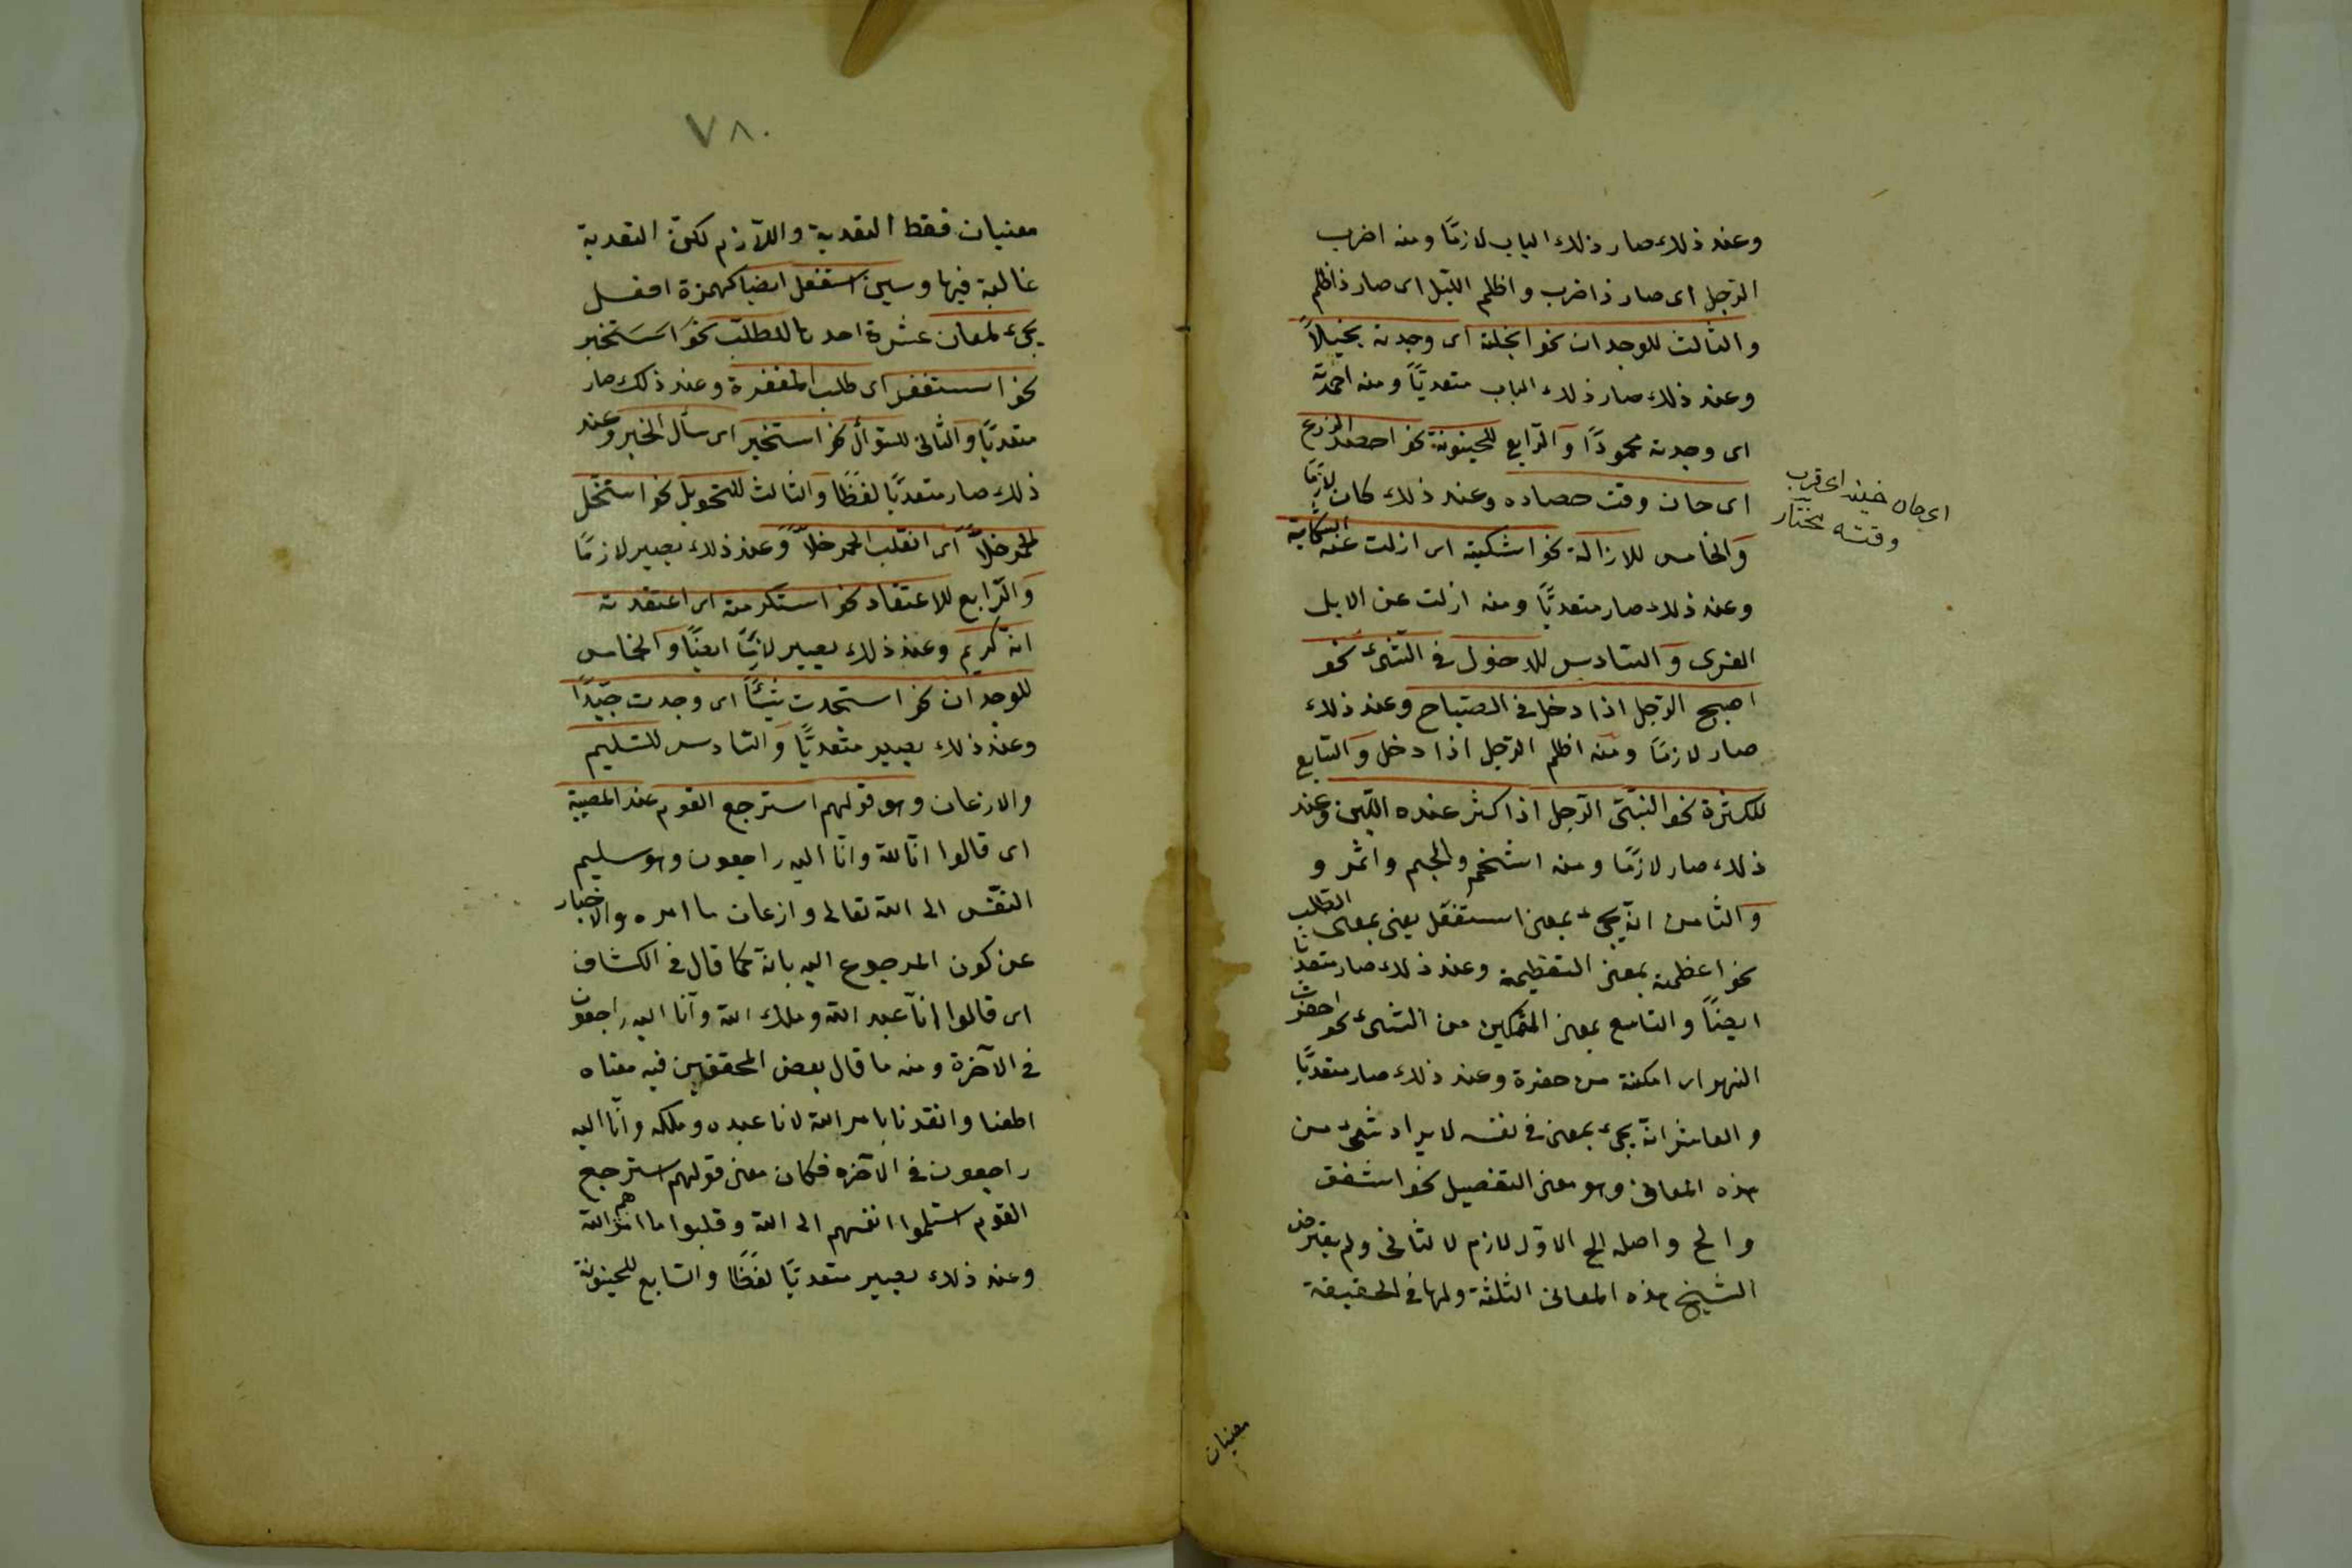 وعند ذلك صار ذلك الباب لازمًا ومنه اضرب
الرّجل اى صار ذا ضرب واظلم اللّيل اى صار ذا ظلم
والثّالث للوجدان نحو ابخلته اى وجدته بخيلاً
وعند ذلك صار ذلك الباب متعديًّا ومنه احمدته
اى وجدته محمودًا والرّابع للحينونة نحو احصد الزرع
اى حان وقت حصاده وعند ذلك كان لازمًا
والخامس للازالة نحو اشكيته اى ازلت عنه الشكاية
وعند ذلك صار متعديًّا ومنه ازلت عن الابل
القرى والسّادس للدخول فى الشّئ نحو
اصبح الرّجل اذا دخل فى الصّباح وعند ذلك
صار لازمًا ومنه اظلم الرّجل اذا دخل والسّابع
للكثرة نحو البن الرّجل اذا كثر عنده اللّبن وعند
ذلك صار لازمًا ومنه اشخم والجم واثمر و
والثّامن انّه يجئ بمعنى استفعل يعنى بمعنى الطّلب
نحو اعظمته بمعنى التعظيمة وعند ذلك صار متعديًّا
ايضًا والتاسع بمعنى التمكين من الشّئ نحو احفرت
النهر اى امكنته من حفرة وعند ذلك صار متعديًّا
والعاشر انّه يجئ بمعنى فى نفسه لا يراد شئ من
هذه المعانى وهو معنى التفصيل نحو اشفق
والح واصله الح الاوّل لازم لا لثانى ولم يعترض
الشّيخ هذه المعانى الثلثة ولها فى الحقيقة
اى حان حينه اى قرب
وقته مختار
معنيان
٧٨٠
معنيان فقط التعدية واللّازم لكن التعدية
غالبة فيها وسين استفعل ايضا كهمزة افعل
يجئ لمعان عشرة احدها للطلب نحو استخبر
نحو استغفر اى طلب المغفرة وعند ذلك صار
متعديًّا والثانى للسّوأل نحو استخبر اى سأل الخبر وعند
ذلك صار متعديًّا لفظًا والثالث للتحويل نحو استخل
الخمر خلاًّ اى انقلب الخمر خلاًّ وعند ذلك يصير لازمًا
والرّابع للاعتقاد نحو استكرمته اى اعتقدته
انّه كريم وعند ذلك يصير ايضًا والخامس
للوجدان نحو استجدت شيئًا اى وجدت جيّدًا
وعند ذلك يصير متعديًّا والسّادس للتسليم
والازعان وهو قولهم استرجع القوم عند المصيبة
اى قالوا انّا للّه وانّا اليه راجعون وهو سليم
النّفس الى اللّه تعالى وازعان ما امره والاخبار
عن كون المرجوع اليه بانّه كما قال فى الكشاف
اى قالوا انّا عبد اللّه وملك اللّه وانّا اليه راجعون
فى الآخرة ومنه ما قال بعض المحققين فيه معناه
اطعنا وانقدنا بامر اللّه لانا عبده وملكه وانّا اليه
راجعون فى الآخره فكان معنى قولهم استرجع
القوم استلموا انفسهم الى اللّه وقلبوا ما امرهم اللّه
وعند ذلك يصير متعديًّا لفظًا والسّابع للحينونة